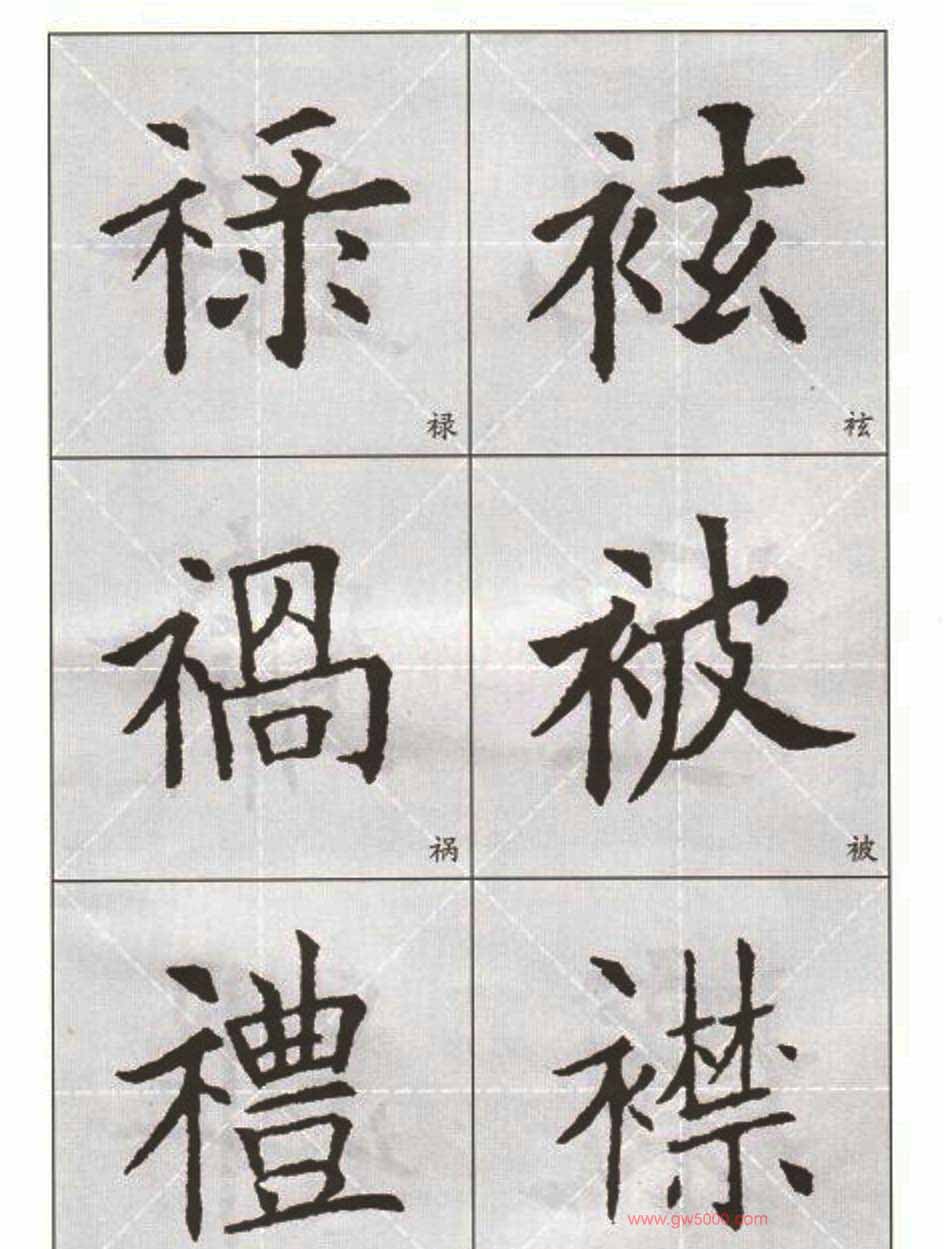 祿 袨
禄 袨
禍 被
祸 被
禮 襟
www.gw5000.com